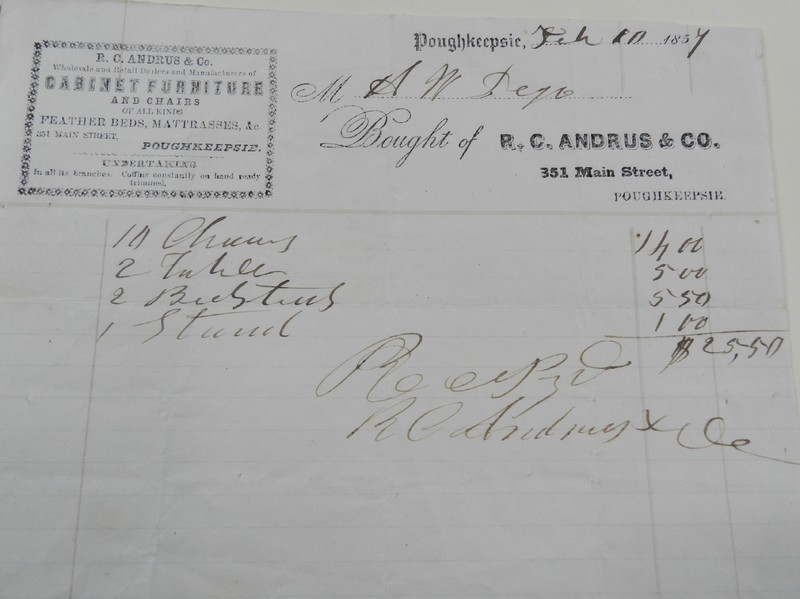 R. C. ANDRUS & Co.
Wholesale and Retail Dealers and Manufacturers of
CABINET FURNITURE
AND CHAIRS
OF ALL KINDS
FEATHER BEDS, MATTRASSES, &c.
351 MAIN STREET,
POUGHKEEPSIE.
UNDERTAKING
In all its branches. Coffins constantly on hand ready
trimmed.
Poughkeepsie, Feb 10 1857
M A W Deyo
Bought of R. C. ANDRUS & CO.
351 Main Street,
POUGHKEEPSIE.
10 Chairs 14 00
2 Tables 5 00
2 Bedsteads 5 50
1 Stand 1 00
$25,50
Rec Pyd
R C Andrus & Co